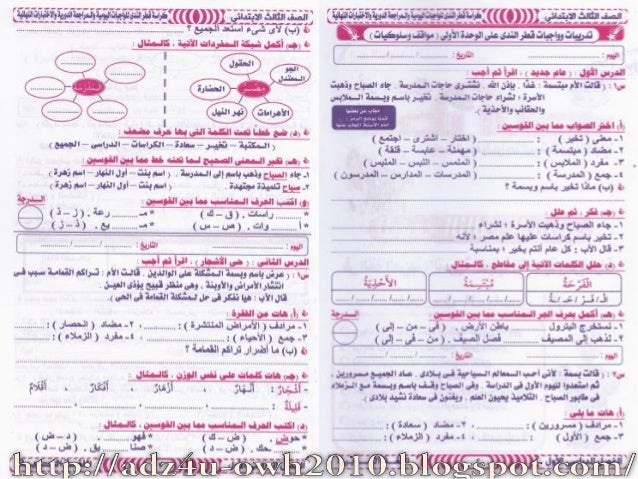 الصف الثالث الابتدائي كراسة قطر الندى للواجبات اليومية والمراجعة الدورية والاختبارات النهائية
تدريبات وواجبات قطر الندى على الوحدة الأولى ( مواقف وسلوكيات )
اليوم : التاريخ :
الدرس الأول : ( عام جديد ) ، اقرأ ثم أجب :
س١ : قالت الأم مبتسمة : غدًا . بإذن الله . نشترى حاجات المدرسة . جاء الصباح وذهبت
الأسرة ؛ لشراء حاجات المدرسة . تخير باسم وبسمة الملابس
والحقائب والأحذية .
(أ) اختر الصواب مما بين القوسين :
١- معنى ( تخير ) : ( اختار – اشترى – اجتمع )
٢- مضاد ( مبتسمة ) : ( مهملة – عابسة – قلقة )
٣- مفرد ( الملابس ) : ( الملبس – اللبس – المليس )
٤- جمع ( المدرسة ) : ( المدرسات – المدارس – المدرسون )
(ب) ماذا تخير باسم وبسمة ؟
(جـ) فكر ، ثم علل :
١- جاء الصباح وذهبت الأسرة ؛ لشراء
٢- تخير باسم كراسات عليها علم مصر ؛ لأنه
٣- قال الأب : كل عام أنتم بخير ؛ بمناسبة
(د) حلل الكلمات الآتية إلى مقاطع ، كالمثال :
الْفَرْحَةُ مُبْتَسِمَةٌ الأَحْذِيَةُ
(هـ) أكمل بحرف الجر المناسب مما بين القوسين :
١- نستخرج البترول باطن الأرض . ( فى – من – إلى )
٢- يذهب التلميذ إلى المكتبة فصل الصيف . ( من – فى – إلى )
اليوم : التاريخ :
س٢ : قالت بسمة : لأنى أحب المعالم السياحية فى بلادى . عاد الجميع مسرورين ،
ثم استعدوا لليوم الأول فى الدراسة . وفى الصباح وقف باسم وبسمة مع الزملاء
فى طابور الصباح . التلاميذ يحيون العلم . ويغنون فى سعادة نشيد بلادى .
(أ) هات ما يلى :
١- مرادف ( مسرورين ) : ٢- مضاد ( سعادة ) :
٣- جمع ( الأول ) : ٤- مفرد ( الزملاء ) :
الصف الثالث الابتدائي كراسة قطر الندى للواجبات اليومية والمراجعة الدورية والاختبارات النهائية
(ب) لأى شىء استعد الجميع ؟
(جـ) أكمل شبكة المفردات الآتية ، كالمثال :
الحقول
الجو المعتدل
الحضارة
مصر
الأهرامات
نهر النيل
المدرسة
(د) ضع خطاً تحت الكلمة التى بها حرف مضعف :
( المكتبية – تخير – سعادة – الكراسات – الدراسى – الجميع )
(هـ) تخير المعنى الصحيح لما تحته خط مما بين القوسين :
١- جاء الصباح وذهب باسم إلى المدرسة . ( اسم بنت – أول النهار – اسم زهرة )
٢- صباح تلميذة مجتهدة . ( اسم بنت – أول النهار – اسم زهرة )
(و) اكتب الحرف المناسب مما بين القوسين : الدرجة
راسات . ( ق – ك ) مـ رعة . ( ز – ذ )
أ وات . ( ص – س ) مـ يع . ( ذ – ز )
اليوم : التاريخ :
الدرس الثانى : ( حى الأشجار ) ، اقرأ ثم أجب :
س١ : عرض باسم وبسمة المشكلة على الوالدين . قالت الأم : تراكم القمامة سبب فى
انتشار الأمراض والأوبئة . وهى منظر قبيح يؤذى العين .
قال الأب : هيا نفكر فى حل لمشكلة القمامة فى الحى .
(أ) هات من الفقرة :
١- مرادف ( الأمراض المنتشرة ) : ٢- مضاد ( انحصار ) :
٣- جمع ( الأحياء ) : ٤- مفرد ( الزملاء ) :
(ب) ما أضرار تراكم القمامة ؟
(جـ) هات كلمات على نفس الوزن ، كالمثال :
- أَشْجَارٌ : أَنْهَارٌ ، أَزْهَارٌ ، أَفْكَارٌ ، أَقْلَامٌ
- قَلِيلَةٌ :
(د) اكتب الحرف المناسب مما بين القوسين ، كالمثال : الدرجة
حوض . ( ض – د ) قهو . ( د – ض )
حك . ( ض – د ) صنا يق . ( د – ض )
http://adz4u-owh2010.blogspot.com/